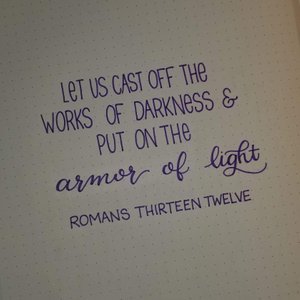 LET US CAST OFF THE
WORKS OF DARKNESS &
PUT ON THE
armor of light
ROMANS THIRTEEN TWELVE